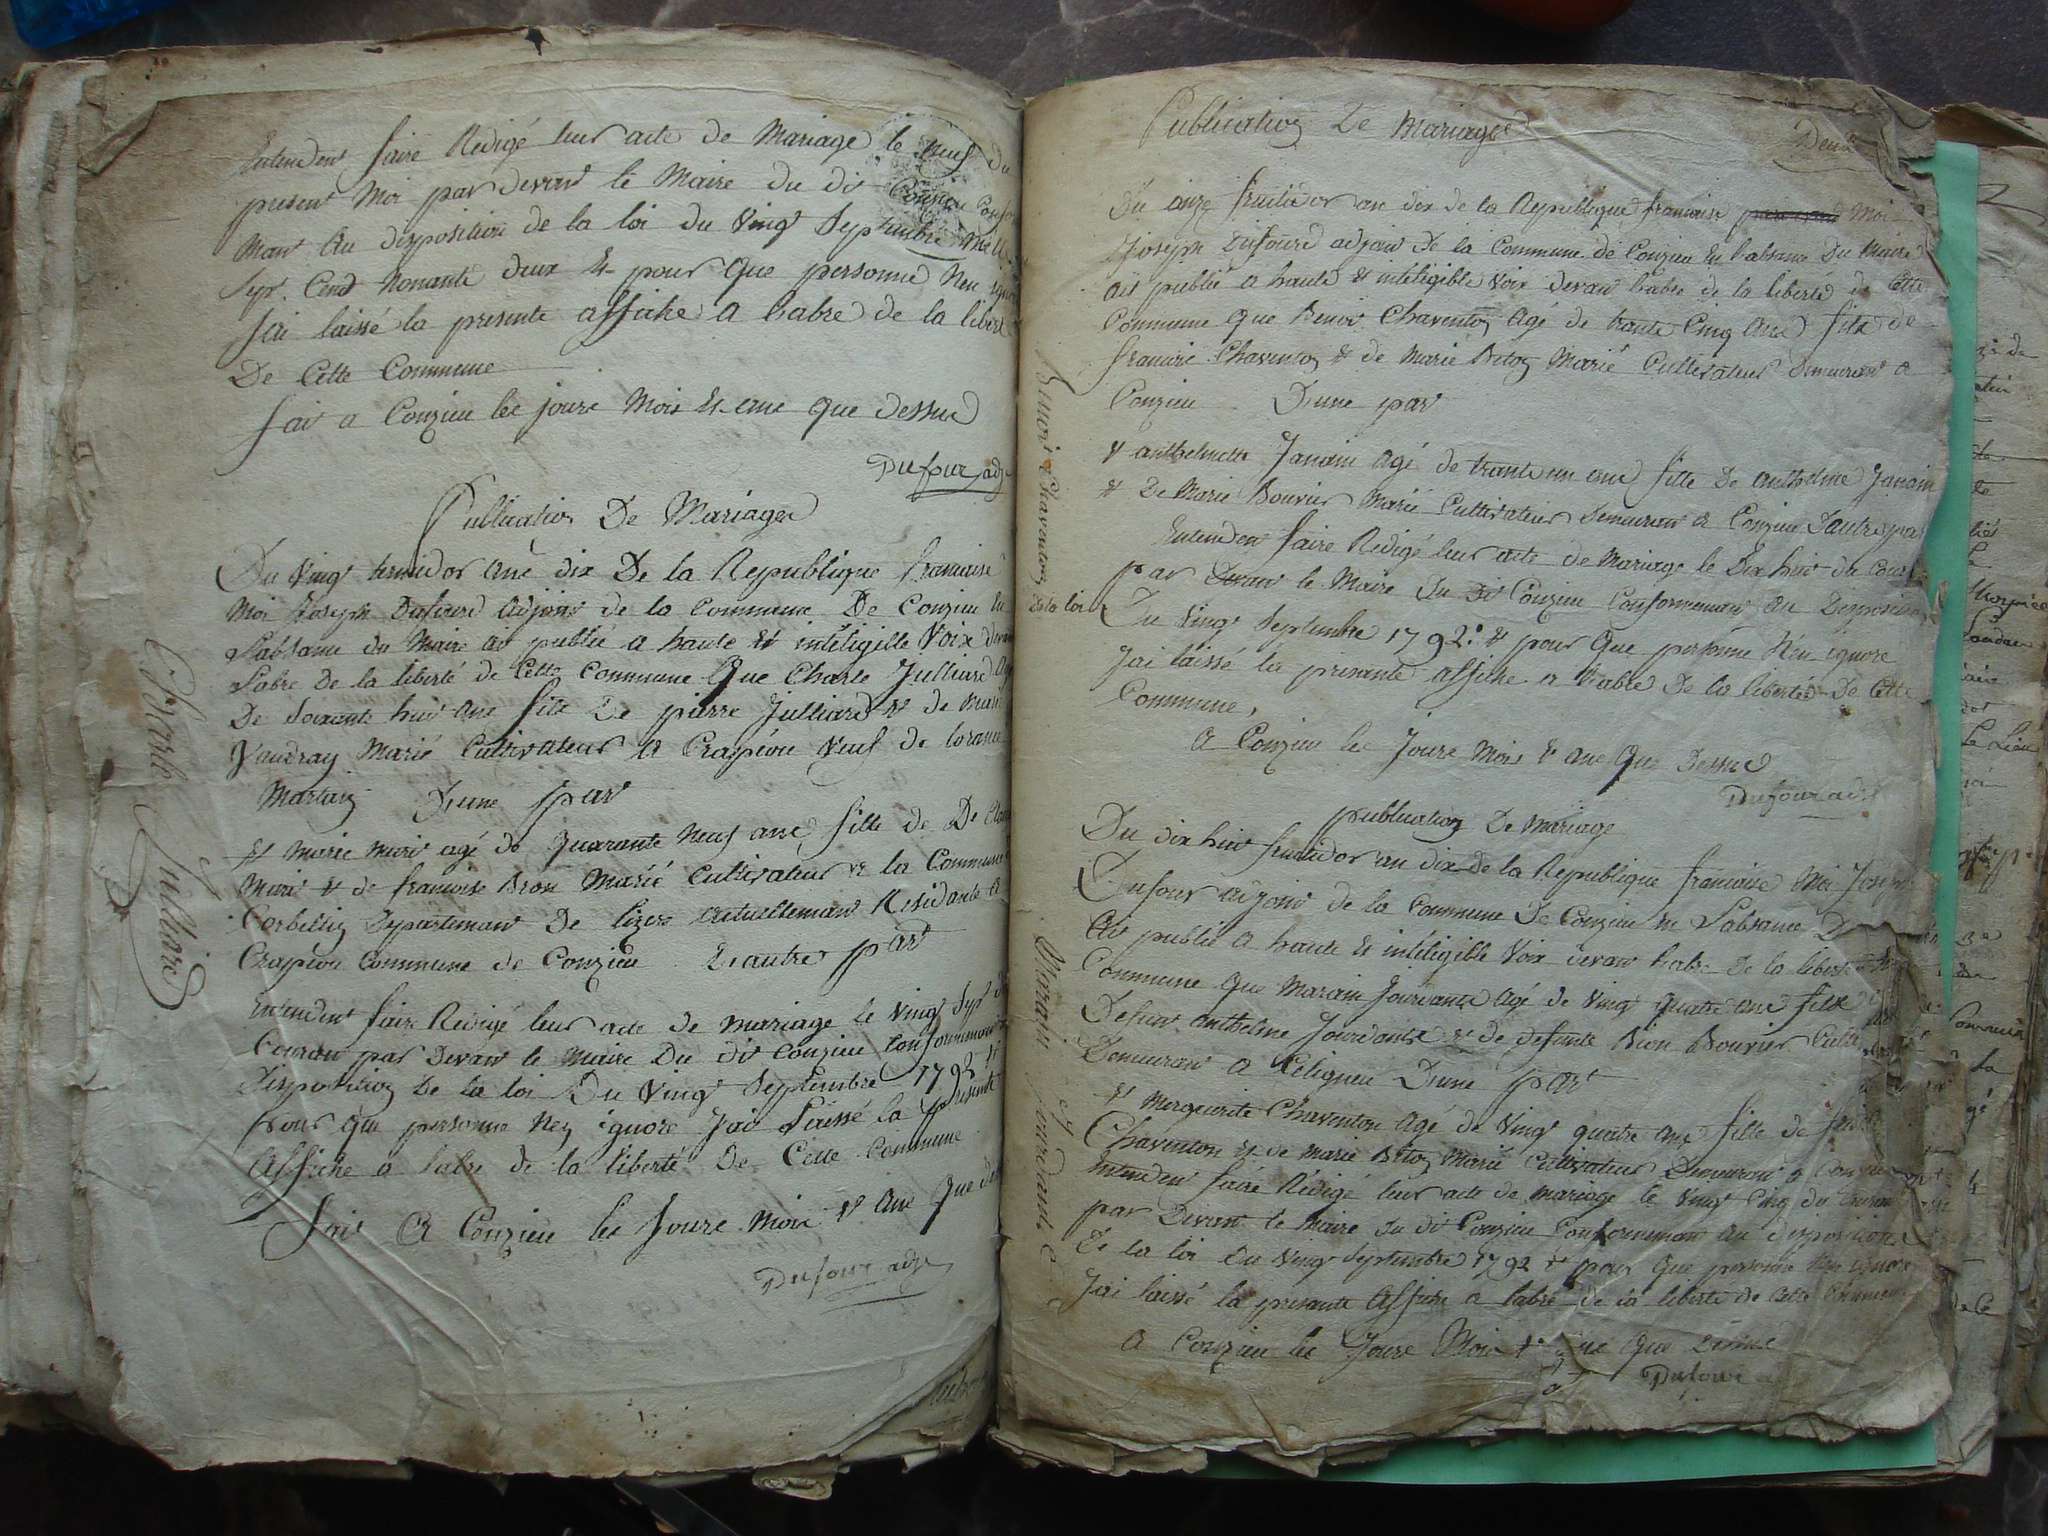 Entendent faire Redigé leur acte de Mariage le neuf du
present Moi par devant le Maire du dit Conzieu Confor
Mant au disposition de la loi du Vingt Septembre Mill
Sept. Cend Nonante deux Et pour Que personne Nen igno
Jai laissé la presente affiche a labre de la libert
De Cette Commune
fait a Conzieu lec jourc Mois Et anc que dessuc
Dufour adj
Publication De Mariagec
Du Vingt termidor anc dix De la Republique francaise
Moi Joseph Dufourd adjoint de la Commune De Conzieu En
Labsance du Maire ai publié a haute et inteligible Voix devan
Labre De la liberté de Cette Commune Que Charle Julliard
De Soixante huit anc fils De pierre Julliard et de
Vaudray Marié Cultivateur a Crapéou Veuf de
Martin D'une part
Et Marie agé de Quarante Neuf anc fille de De
et de francoise Bron Marié Cultivateur a la Commune
Corbellin Departement De lizere actuellemant Residante a
Crapéou Commune de Conzieu D'autre part
Entendent faire Redigé leur acte de mariage le Vingt Sept du
Courant par Devant le Maire Du dit Conzieu Conformement
disposition De la loi Du Vingt Septembre 1792 et
pour Que personne Nen ignore Jai Laissé la presente
Affiche a labre de la liberté De Cette Commune
fait a Conzieu lec Jourc Moic et Anc Que
Dufour adj
Charle Julliard
Publication De Mariagec
Deux
Du onze fructidor an dix de la Republique francaise Moi
Joseph Dufourd adjoint De la Commune de Conzieu En Labsance Du Maire
ait publié a haute et inteligible Voix devant labre de la liberté de Cette
Commune Que Benoit Chaventon Agé de trante Cinq anc fils de
francois Chaventon et de Marie Biton Marié Cultivateur Demeurant a
Conzieu D'une part
et anthelmette Janain Agé de trante un anc fille De anthelme Janain
et De Marie Bouvier Marié Cultivateur Demeurant a Conzieu Dautre par
Entendent faire Redigé leur acte de Mariage le Dix huit du Cour
par Devant le Maire Du Dit Conzieu Conformemant Au Disposition
de la loi Du Vingt Septembre 1792. et pour Que personne Nen ignore
Jai laissé la presante affiche a labre De la liberté De Cette
Commune,
A Conzieu lec Jourc Mois et anc Que Dessuc
Dufour adj
Benoit Chaventon
publication De Mariage
Du dix huit fructidor an dix de la Republique francaise Moi Joseph
Dufour adjoint de la Commune De Conzieu En Labsance D
Ait publié a haute Et inteligible Voix devant labre De la liberté
Commune Que Marain Jourdant Agé de Vingt quatre anc fils
Defunt anthelme Jourdant et de defunte Bouvier Culti
Demeurant a D'une part
et Merguerite Chaventon Agé de Vingt quatre anc fille de
Chaventon Et de Marie Biton Marié Cultivateur Demeurant a
Entendent faire Redigé leur acte de Mariage le Vingt Cinq du Courant
par Devant le Maire Du dit Conzieu Conformemant au disposition
de la loi du Vingt Septembre 1792 et pour Que personne Nen ignore
Jai laissé la presante Affiche a labre de la liberté de Cette Commune
A Conzieu lec Jourc Moic et anc Que Dessuc
Dufour
Marain Jourdant